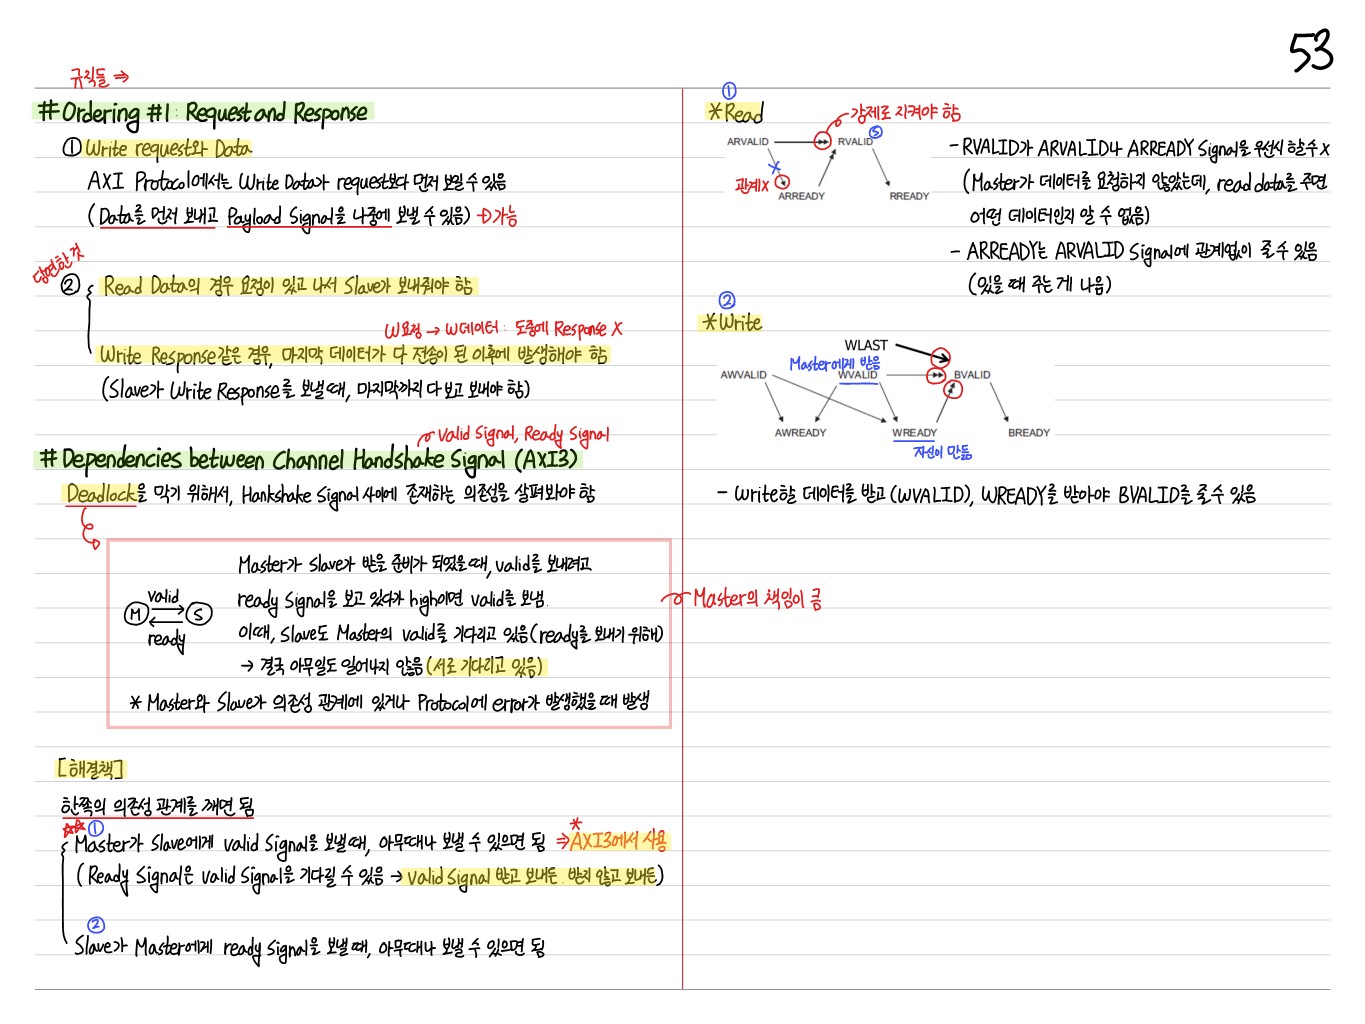 53
규칙들 ⇒
# Ordering #1 : Request and Response
① Write request와 Data
AXI Protocol에서는 Write Data가 request보다 먼저 보일 수 있음
(Data를 먼저 보내고 Payload Signal을 나중에 보낼 수 있음) → 가능
당연한 것
② Read Data의 경우 요청이 있고 나서 Slave가 보내줘야 함
W요청 → W데이터 : 도중에 Response X
Write Response같은 경우, 마지막 데이터가 다 전송이 된 이후에 발생해야 함
(Slave가 Write Response를 보낼 때, 마지막까지 다 보고 보내야 함)
Valid Signal, Ready Signal
# Dependencies between Channel Handshake Signal (AXI3)
Deadlock을 막기 위해서, Hankshake Signal 사이에 존재하는 의존성을 살펴봐야 함
Master가 Slave가 받을 준비가 되었을 때, valid를 보내려고
ready Signal을 보고 있다가 high이면 valid를 보냄.
이때, Slave도 Master의 valid를 기다리고 있음 (ready를 보내기 위해)
→ 결국 아무일도 일어나지 않음 (서로 기다리고 있음)
valid
M S
ready
* Master와 Slave가 의존성 관계에 있거나 Protocol에 error가 발생했을 때 발생
Master의 책임이 큼
[해결책]
한쪽의 의존성 관계를 깨면 됨
① Master가 Slave에게 valid Signal을 보낼 때, 아무때나 보낼 수 있으면 됨 ⇒ * AXI3에서 사용
(Ready Signal은 valid Signal을 기다릴 수 있음 → valid Signal 받고 보내든, 받지 않고 보내든)
② Slave가 Master에게 ready Signal을 보낼 때, 아무때나 보낼 수 있으면 됨
①
* Read
강제로 지켜야 함
ARVALID RVALID Ⓢ
관계X
ARREADY RREADY
- RVALID가 ARVALID나 ARREADY Signal을 우선시 할 수 X
(Master가 데이터를 요청하지 않았는데, read data를 주면
어떤 데이터인지 알 수 없음)
- ARREADY는 ARVALID Signal에 관계없이 줄 수 있음
(있을 때 주는 게 나음)
②
* Write
WLAST
Master에게 받음
AWVALID WVALID BVALID
AWREADY WREADY BREADY
자신이 만듦
- Write할 데이터를 받고 (WVALID), WREADY를 받아야 BVALID를 줄 수 있음